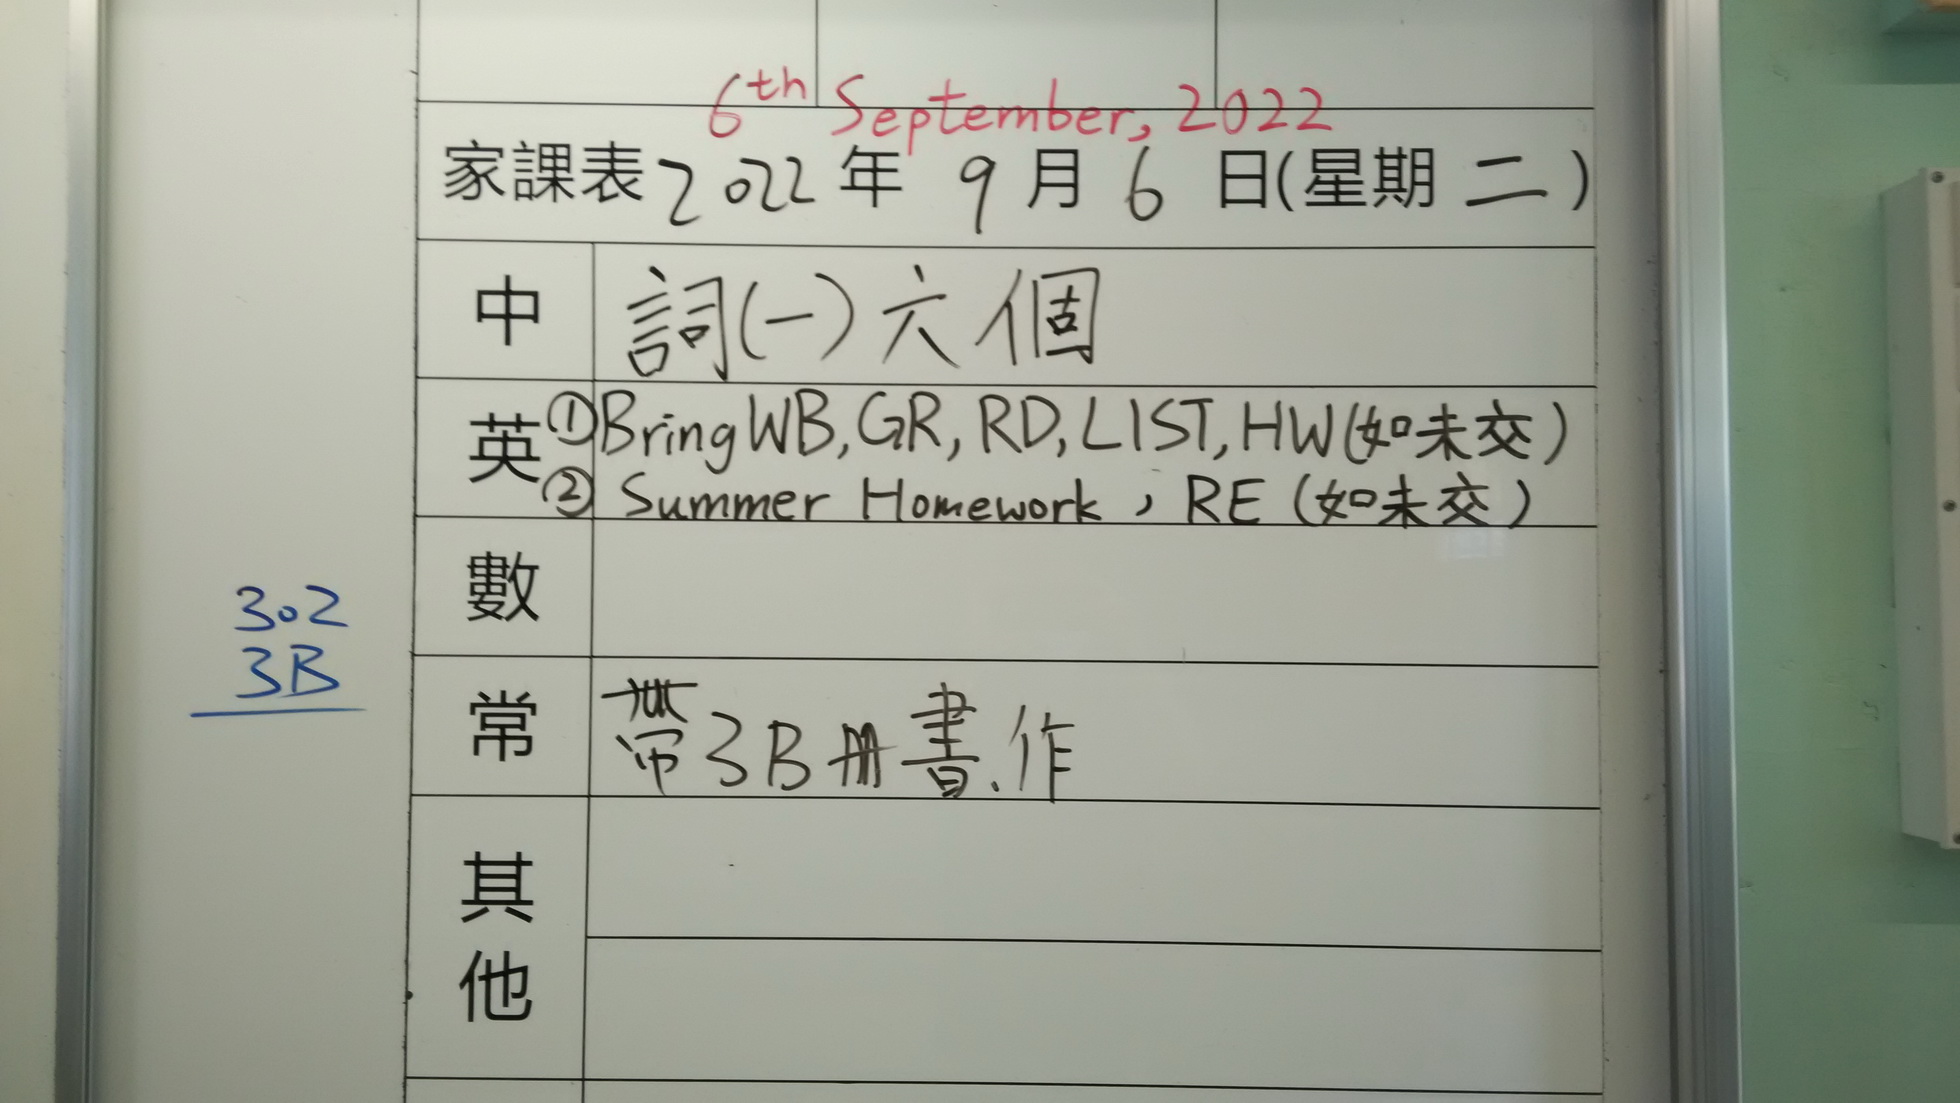 6th September, 2022
家課表 2022 年 9 月 6 日(星期 二)
中 詞(一)六個
英 ①Bring WB, GR, RD, LIST, HW(如未交)
② Summer Homework, RE (如未交)
數
302
3B
常 帶3B冊書、作
其他